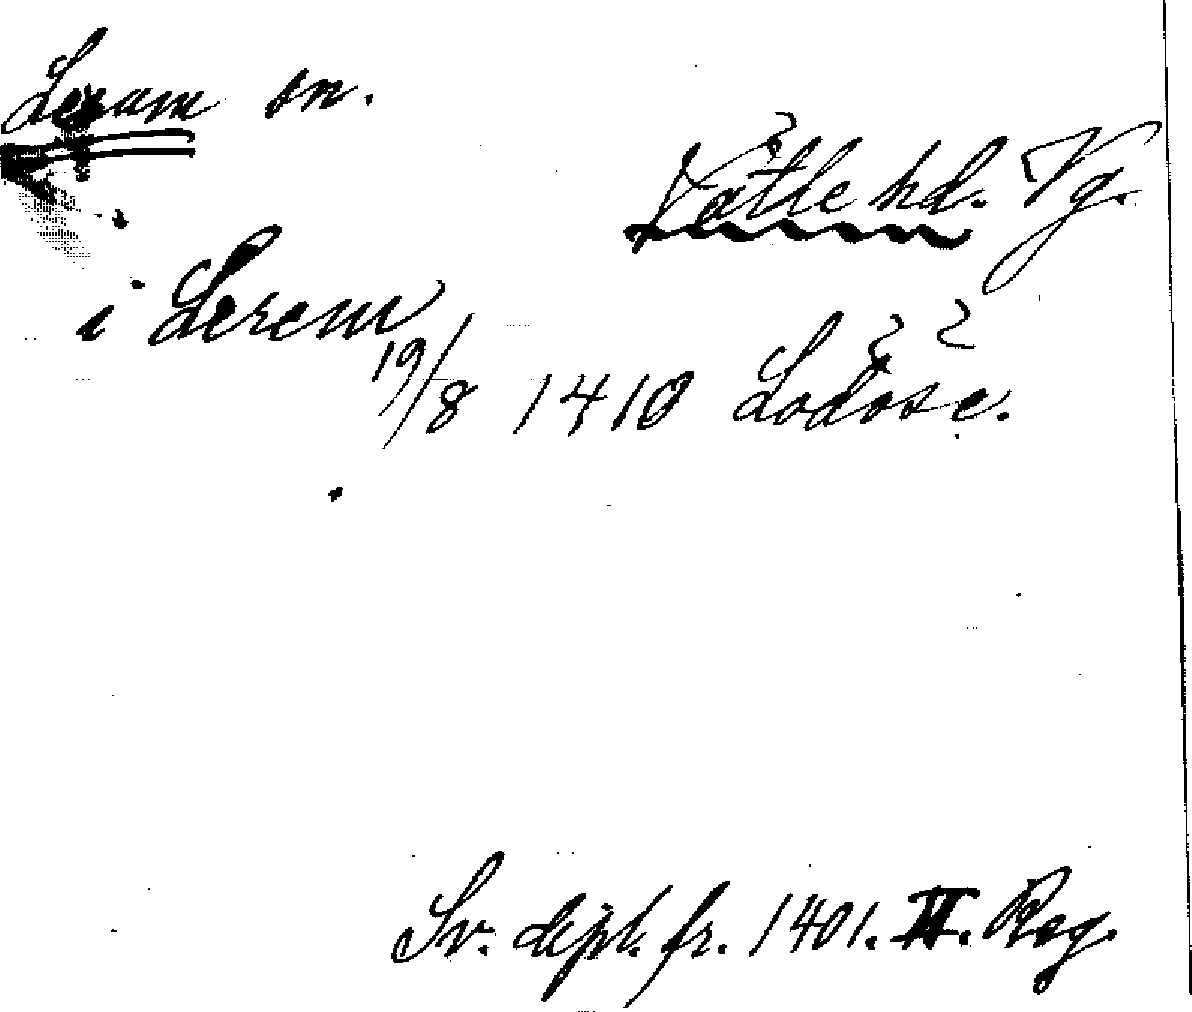 Lerum sn.
Vättle hd. Vg.
i Lerem
19/8 1410 Lödöse.
Sv. dipl. fr. 1401. II. Reg.